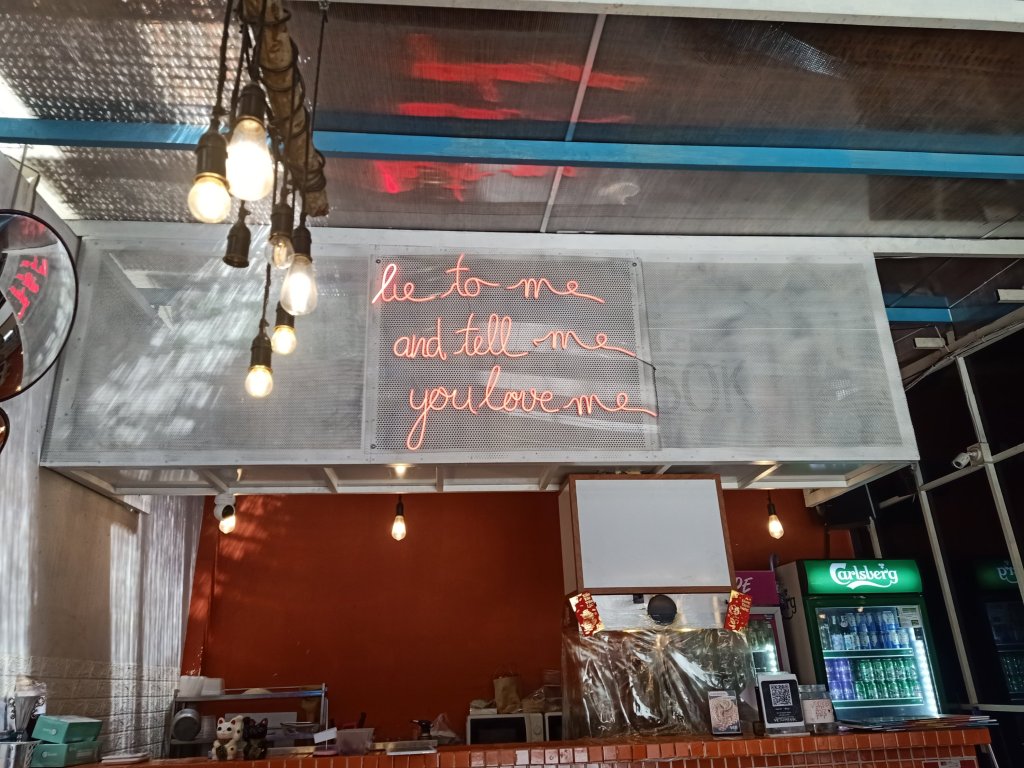 lie to me
and tell me
you love me
Carlsberg